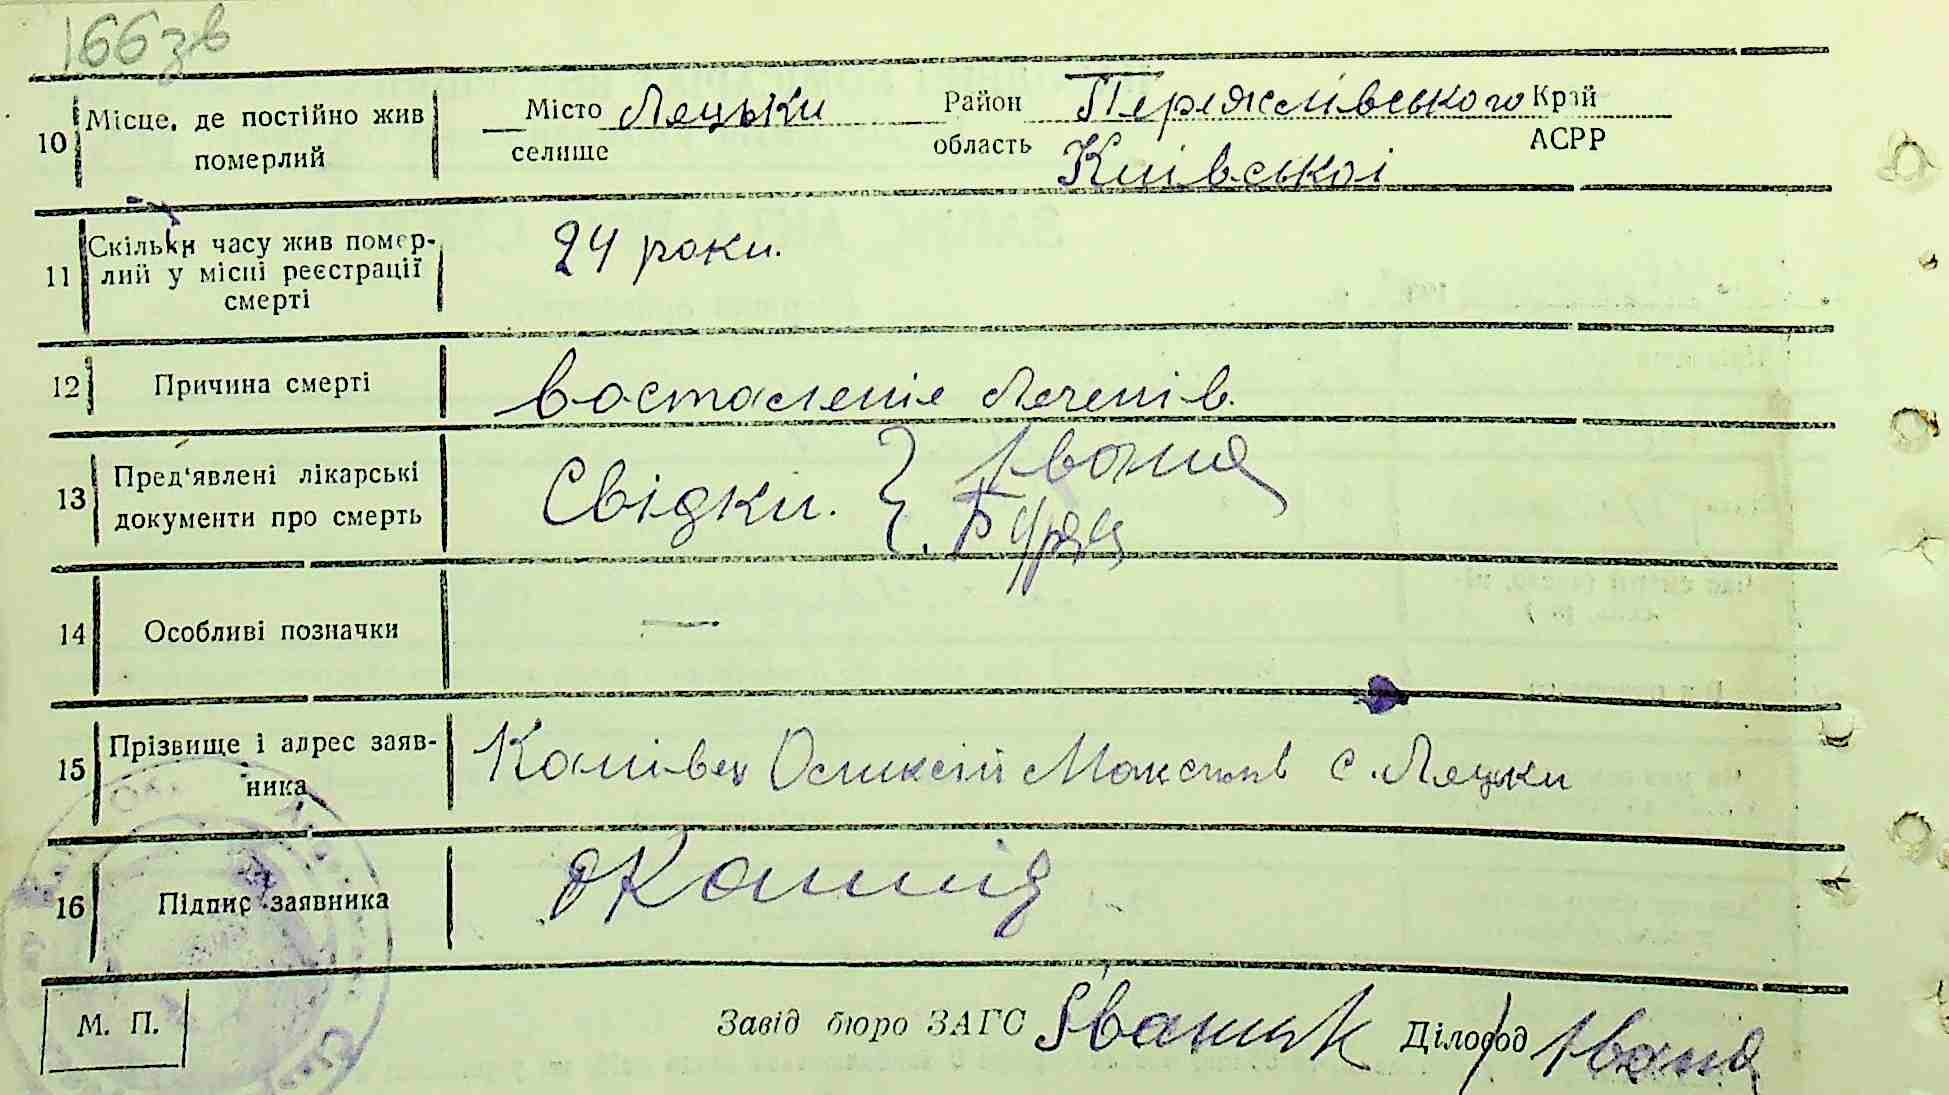 166зв
10 Місце, де постійно жив Місто Лецьки Район Переяслівського Край
померлий селище область Київської АСРР
11 Скільки часу жив помер-
лий у місці реєстрації 24 роки.
смерті
12 Причина смерті востоленіє Легенів.
13 Пред'явлені лікарські
документи про смерть Свідки.
14 Особливі позначки —
15 Прізвище і адрес заяв-
ника Канівец Оликсій Максимів с. Лецки
16 Підпис заявника
М. П. Завід бюро ЗАГС Діловод